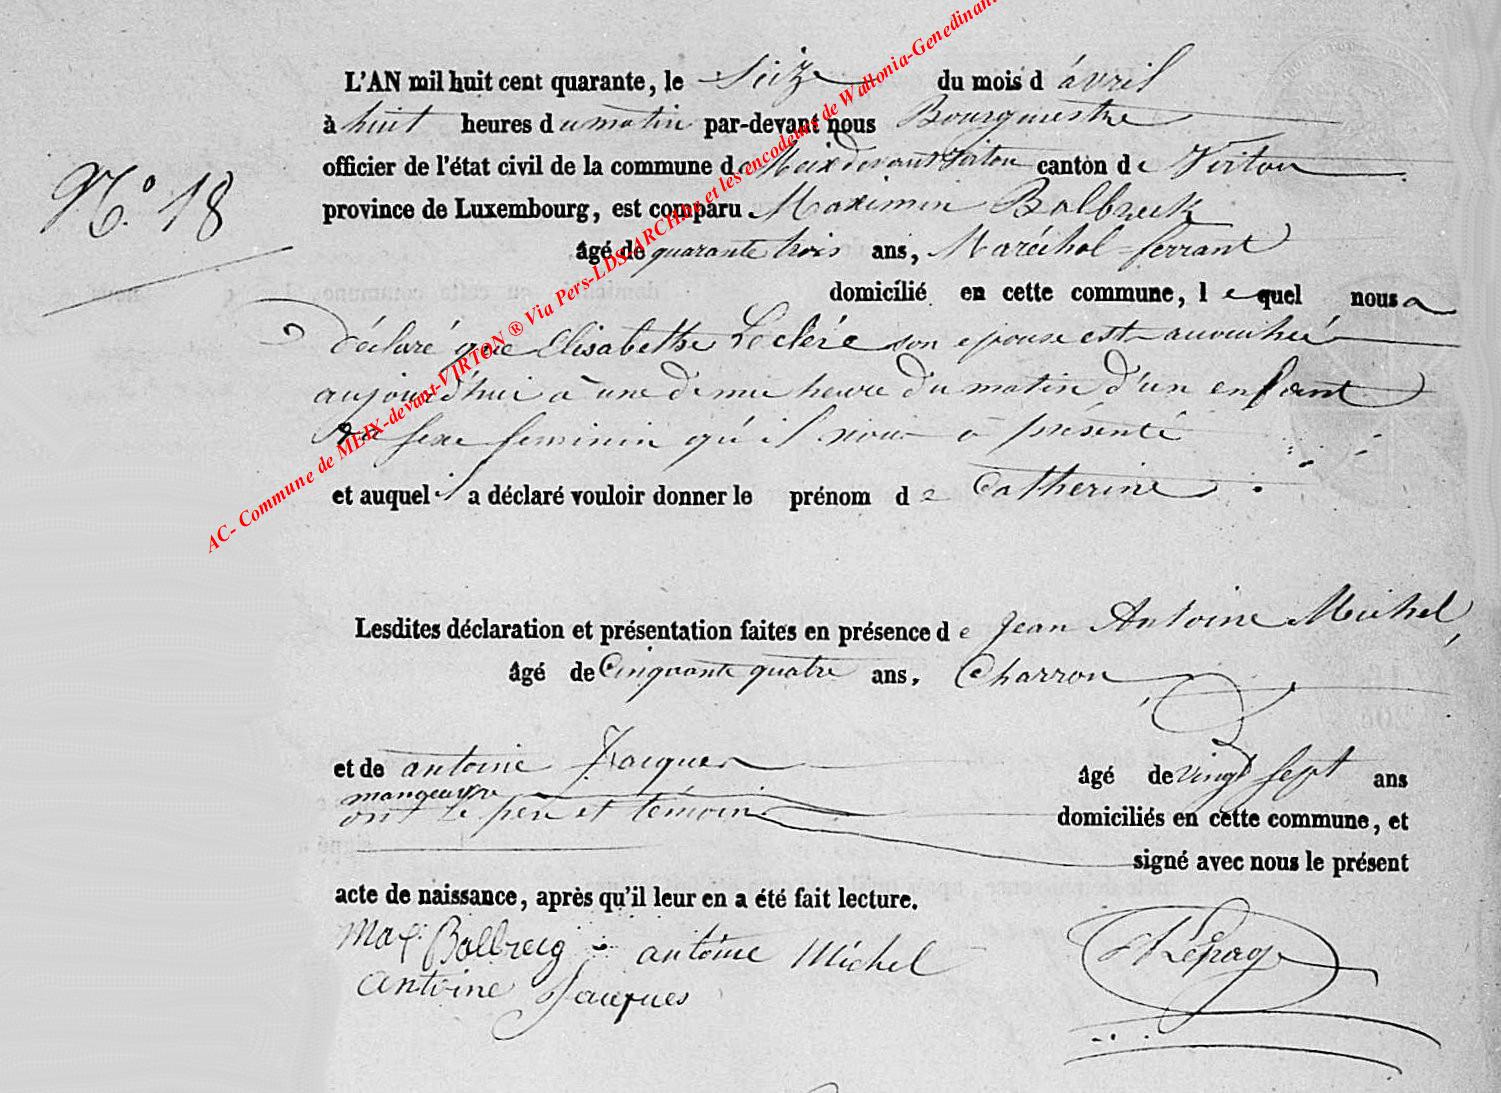 L'AN mil huit cent quarante, le seize du mois d'avril
à huit heures du matin par-devant nous Bourgmestre
officier de l'état civil de la commune de Meix devant Virton canton de Virton
N.° 18
province de Luxembourg, est comparu Maximin Balbreck
âgé de quarante trois ans, Maréchal ferrant
domicilié en cette commune, lequel nous a
déclaré que Elisabethe Leclère son epouse est accouchée
aujourd'hui à une demie heure du matin d'un enfant
du sexe feminin qu'il nous a présenté
et auquel il a déclaré vouloir donner le prénom de Catherine
Lesdites déclaration et présentation faites en présence de Jean Antoine Michel,
âgé de Cinquante quatre ans, Charron
et de antoine Jacques âgé de vingt sept ans
manoeuvre
ont le pere et témoins domiciliés en cette commune, et
signé avec nous le présent
acte de naissance, après qu'il leur en a été fait lecture.
Max. Balbrecq antoine Michel
antoine Jacques
AC- Commune de MEIX-devant-VIRTON ® Via Pers-LDS-ARCH.be et les encodeurs de Wallonia-Genedinant